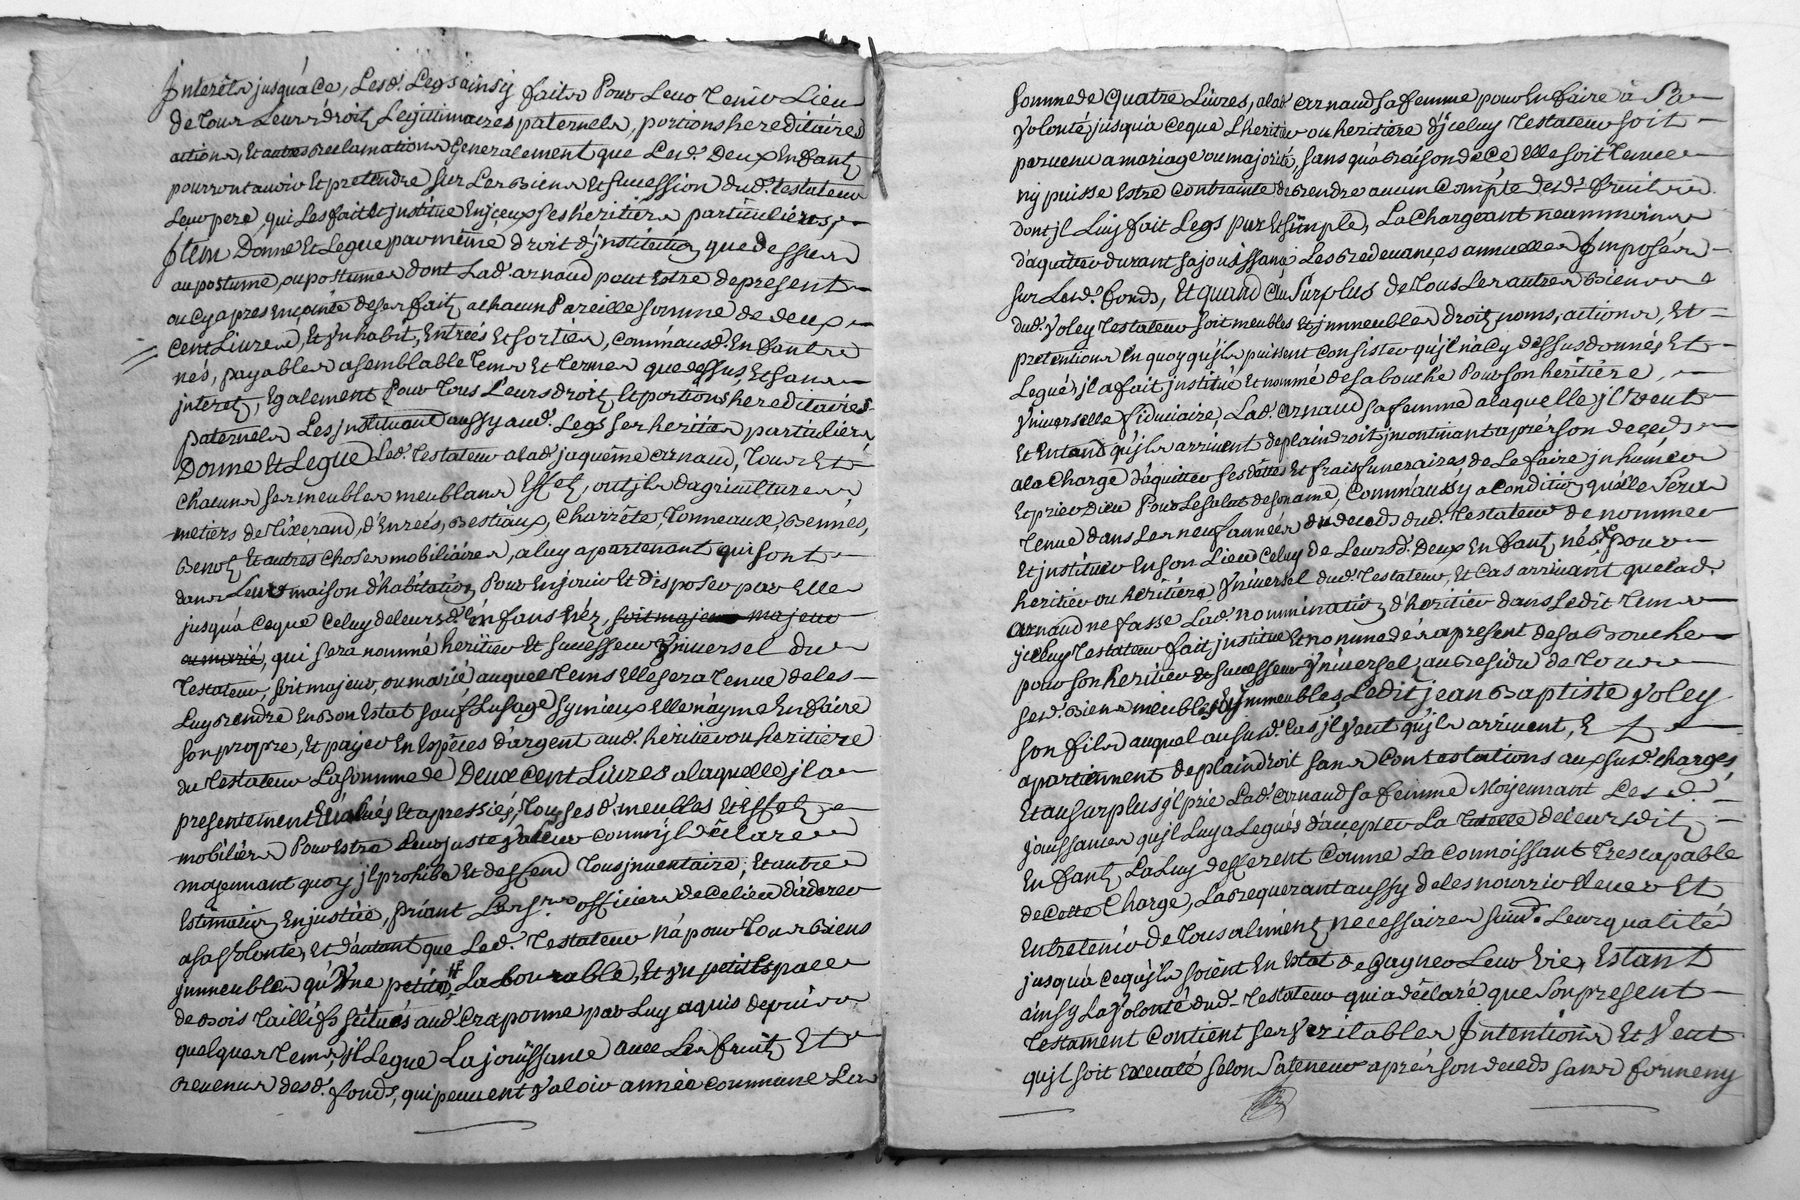 Interêts jusqu'à ce, Lesd. Legs ainsy faits Pour Leur Tenir Lieu
de Tous Leurs droits Legittimaires paternels, portions hereditaires
actions, Et autres reclamations Generalement que Lesd. Deux Enfants
pourront avoir Et pretendre sur Les Biens Et Succession dud. testateur
Leur pere, qui Les fait Et justitue En jceux ses heritiers particuliers,
Jtem Donne Et Legue par même droit d'jnstitution que dessus
au postume, ou postumes dont Lad. arnaud peut Estre de present
ou cy apres Enceinte de ses faits a chacun Pareille somme de deux
Cent Livres, Et Un habit, Entreés Et sorties, comm'ausd. Enfants
nés, payables a semblable Tems Et Termes que dessus, Et sans
jnterets, Egalement Pour Tous Leurs droits Et portions hereditaires
paternels Les jnstituant aussy aud. Legs ses heritiers particuliers
Donne Et Legue Led. Testateur a lad. jaquême arnaud, Tous Et
Chacuns ses meubles meublans Effets, outjls d'agriculture
metiers de Tixerand, d'Enreés, Bestiaux, Charrête, Tonneaux, Bennes,
Benots Et autres Choses mobiliaires, a luy apartenant qui sont
dans Leur maison d'habitation Pour En jouir Et disposer par Elle
jusqu'à ce que Celuy de leursd. Enfans néz, soit majeur majeur
ou marié, qui sera nommé heritier Et Successeur Universel du
Testateur, soit majeur, ou marié auquel Tems Elle sera Tenue de les
Luy rendre En Bon Estat sauf L'usage sy mieux Elle n'ayme En faire
son propre, Et payer En Espêces d'argent aud. heritier ou heritiere
du Testateur La somme de Deux Cent Livres a laquelle jl a
presentement Evalués Et apressiés, Tous sesd. meubles Et Effets
mobiliers Pour Estre Leur juste valeur comm'jl declare
moyennant quoy jl prohibe Et deffend Tous jnventaire, Et autre
Estimation En justice, priant Les srs. officiers de Ce lieu d'aderer
a sa Volonté, Et d'autant que Led. Testateur n'a pour Tous Biens
jmmeubles qu'Une petite La Bourable, Et Un petit Espace
de Bois Taillifs situés aud. Craponne par Luy aquis depuis
quelques Tems, jl Legue La jouissance avec Les fruits Et
revenus desd. fonds, qui peuvent valoir année commune La
somme de quatre Livres, a lad. arnaud sa femme pour En faire à Sa
Volonté jusqu'à ce que L'heritier ou heritiere d'jceluy Testateur soit
parvenu a mariage ou majorité, sans qu'à raison de Cê Elle soit Tenue
ny puisse Estre Contrainte de rendre aucun Compte desd. fruits
dont jl Luy fait Legs pur Et simple, La Chargeant neammoins
d'aquitter durant sa jouissance Les redevances annuelles Jmposés
sur Lesd. fonds, Et quand au Surplus de Tous Les autres Biens
dud. Voley Testateur soit meubles Et jmmeubles droits, noms, actions, Et
pretentions En quoy qu'jls puissent Consister qu'jl n'a Cy dessus donnés Et
Legués jl a fait jnstitué Et nommé de sa bouche Pour son heritiere
Universelle fiduciaire, Lad. arnaud sa femme a laquelle jl Veut
Et Entand qu'jls arrivent de plain droit jncontinant aprés son deceds
a la Charge d'aquitter ses dettes Et frais funeraires, de Le faire jnhumer
Et prier Dieu Pour Le salut de son ame, Comm'aussy a Condition qu'elle Sera
Tenue dans Les neuf années du deceds dud. Testateur de nommer
Et jnstituer En son Lieu Celuy de Leursd. Deux Enfants nés pour
heritier ou heritiere Universel dud. Testateur, Et Cas arrivant que Lad.
arnaud ne fasse Lad. nommination d'heritier dans Ledit Tems
jceluy Testateur fait jnstitue Et nomme dés a present de sa Bouche
pour son heritier Et Successeur Universel, au residu de Tous
sesd. Biens meubles Et jmmeubles, Ledit jean Baptiste Voley
son fils auquel au susd. Cas jl Veut qu'jls arrivent, Et
apartiennent de plain droit sans Contestations aux susd. charges
Et au surplus jl prie Lad. arnaud sa femme Moyennant Lesd.
jouissances qu'jl Luy a Legués d'accepter La Tutelle de leursdits
Enfants, La Luy defferent Comme La Connoissant Trescapable
de Cette Charge, La requerant aussy de les nourrir Elever Et
Entretenir de Tous aliments necessaires suivd. Leur qualité
jusqu'à ce qu'jls soient En Estat de Gagner Leur Vie, Estant
ainsy La Volonté dud. Testateur qui a declaré que Son present
Testament Contient ses Veritables Jntentions Et Veut
qu'jl soit Executé selon Sa teneur aprés son deceds sans forme ny